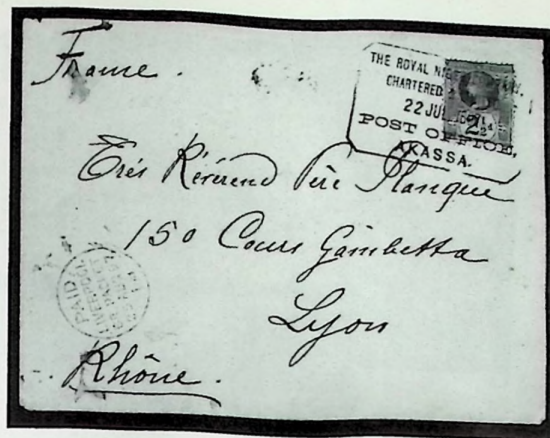 France.
THE ROYAL
CHARTERED
22
2½d
POST OFFICE,
AKASSA.
Très Révérend Père Planque
150 Cours Gambetta
Lyon
PAID
LIVERPOOL
Rhône.